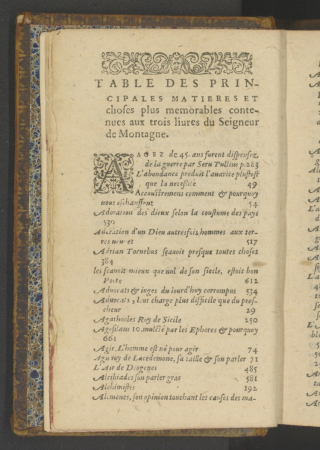 TABLE DES PRIN-
CIPALES MATIERES ET
choses plus memorables conte-
nues aux trois liures du Seigneur
de Montagne.
AAGEZ de 45. ans furent dispensez,
de la guerre par Seru Tullius p. 283
L'abondance produit l'auarice plustost
que la necesité 49
Accoustremens comment & pourquoy
nous eschauffent 54
Adoration des dieux selon la coustume des pays
530
Adoration d'un Dieu autresfois, hommes aux ter-
517
Adrian Tornebus sçauoit presque toutes choses
384
les sçauoit mieux que nul de son siecle, estoit bon
Poete 612
Aduocats & iuges du iourd'huy corrompus 534
Aduocats, leur charge plus difficile que du pres-
cheur 29
Agathocles Roy de Sicile 250
Agesilaus mulcté par les Ephores & pourquoy
661
Agir. L'homme est né pour agir 74
Agis roy de Lacedemone, sa taille & son parler 71
L'Air de Diogenes 485
Alcibiades son parler gras 581
Alchimistes 192
Alcmeons, son opinion touchant les causes des ma-